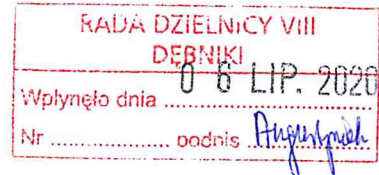 RADA DZIELNICY VIII
DĘBNIKI
Wpłynęło dnia 06 LIP. 2020
Nr ............ podpis